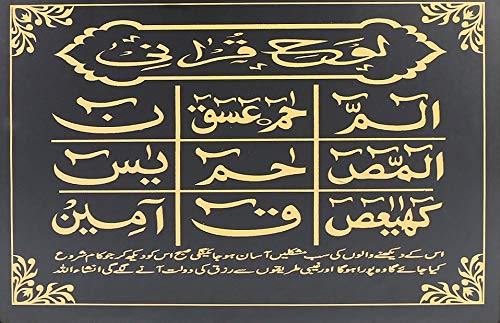 لوح قرآنی
الٓمّٓ حٰمٓ عٓسٓقٓ نٓ
الٓمّٓصٓ حٰمٓ يٰسٓ
كٓهٰيٰعٓصٓ قٓ آمين
اس کے دیکھنے والوں کی سب مشکلیں آسان ہوجائینگی صبح اس کو دیکھ کر جو کام شروع
کیا جائے گا وہ پورا ہوگا اور غیبی طریقوں سے رزق کی دولت آنے لگے گی انشاء اللہ